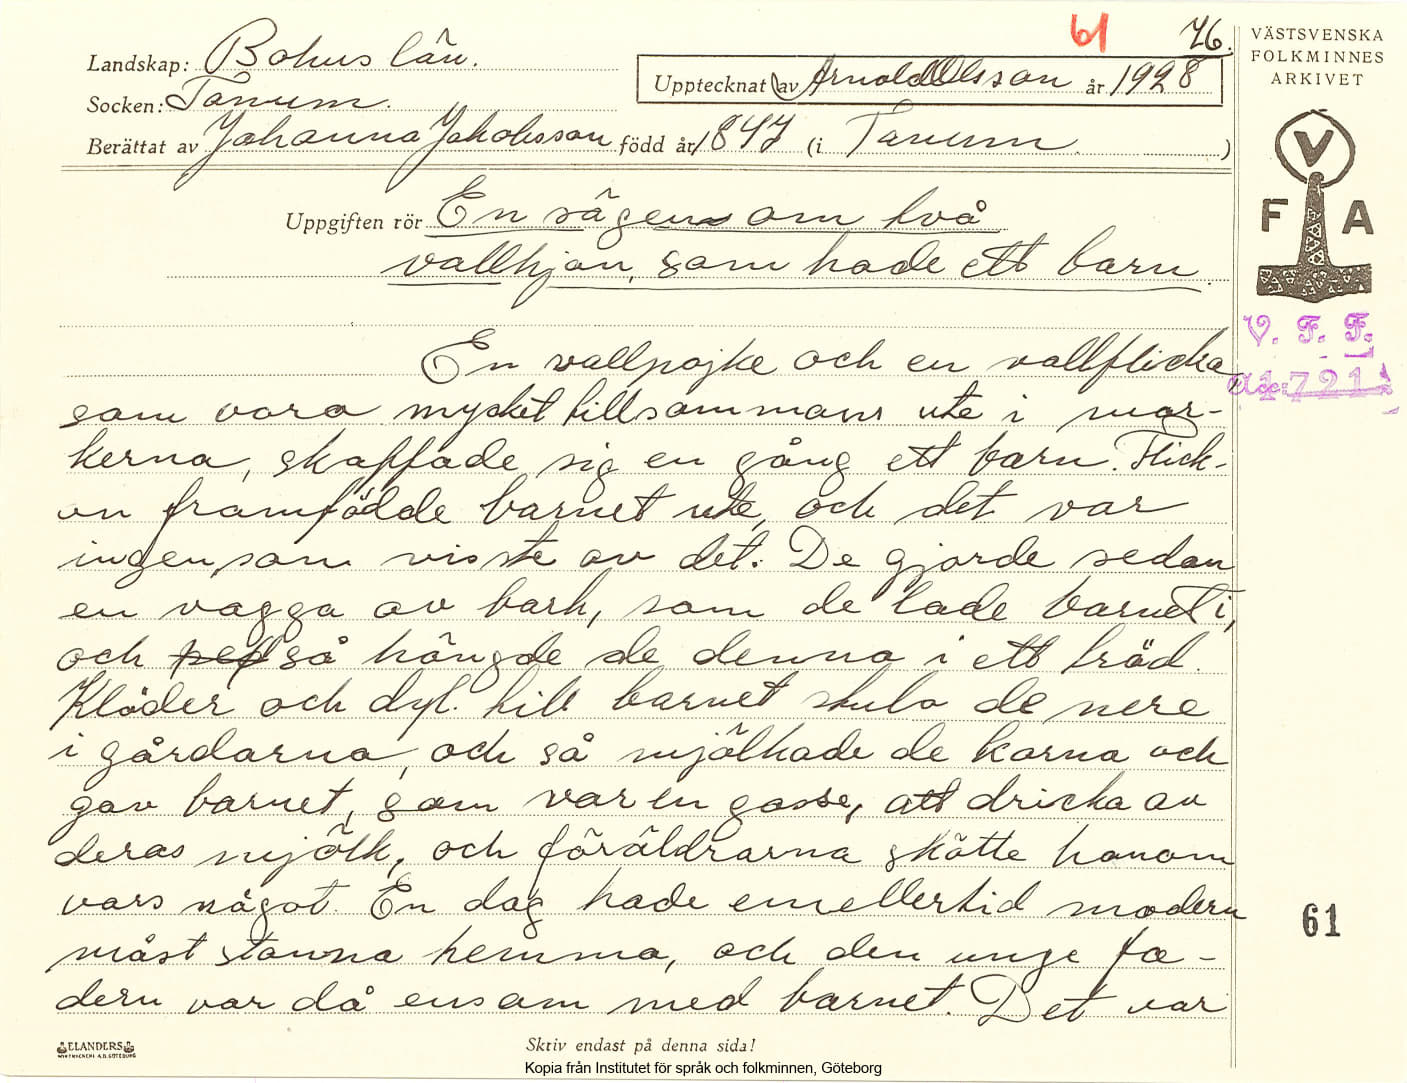 61 76.
Landskap: Bohuslän.
Upptecknat av Arnold Olsson år 1928
Socken: Tanum.
Berättat av Johanna Jakobsson född år 1847 (i Tanum. )
Uppgiften rör En sägen om två
vallhjon, som hade ett barn.
En vallpojke och en vallflicka,
som voro mycket tillsammans ute i mar-
kerna, skaffade sig en gång ett barn. Flick-
an framfödde barnet ute, och det var
ingen, som visste av det. De gjorde sedan
en vagga av bark, som de lade barnet i,
och så hängde de denna i ett träd.
Kläder och dyl. till barnet stulo de nere
i gårdarna, och så mjölkade de korna och
gav barnet, som var en gosse, att dricka av
deras mjölk, och föräldrarna skötte honom
vars något. En dag hade emellertid modern
måst stanna hemma, och den unge fa-
dern var då ensam med barnet. Det var
Skriv endast på denna sida!
ELANDERS
BOKTRYCKERI A.B. GÖTEBORG
VÄSTSVENSKA
FOLKMINNES
ARKIVET
V
F A
V. F. F.
Acc: 1721
61
Kopia från Institutet för språk och folkminnen, Göteborg